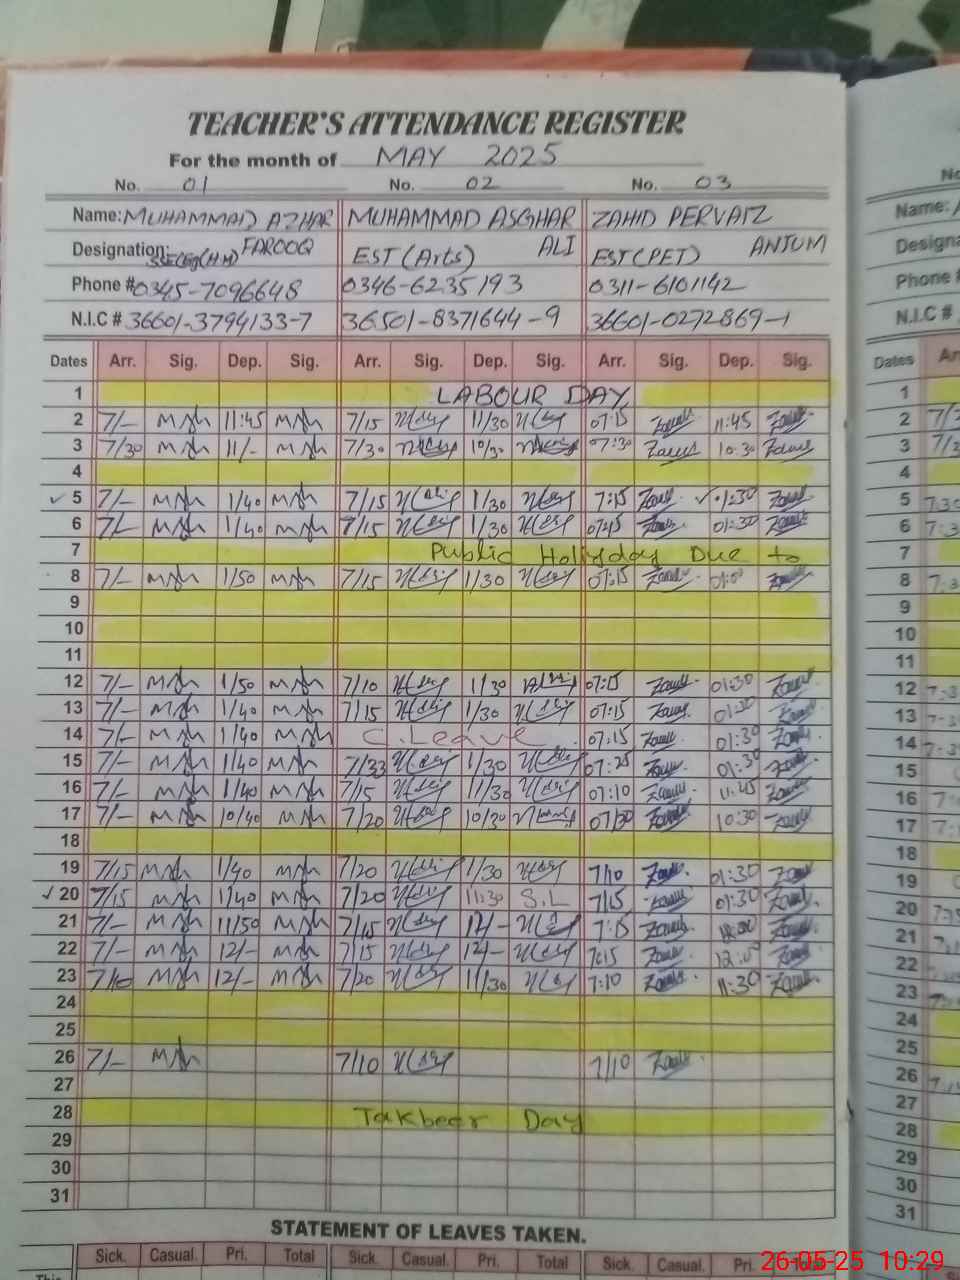 TEACHER'S ATTENDANCE REGISTER
For the month of MAY 2025
No. 01 No. 02 No. 03
Name: MUHAMMAD AZHAR MUHAMMAD ASGHAR ZAHID PERVAIZ
Designation: FAROOQ EST (Arts) ALI EST (PET) ANJUM
Phone # 0345-7096648 0346-6235193 0311-6101142
N.I.C # 36601-3794133-7 36501-8371644-9 36601-0272869-1
Dates Arr. Sig. Dep. Sig. Arr. Sig. Dep. Sig. Arr. Sig. Dep. Sig.
1 LABOUR DAY
2 7/- 11:45 7/15 11/30 07:15 11:45
3 7/30 11/- 7/30 10/30 07:30 10:30
4
5 7/- 1/40 7/15 1/30 7:15 01:30
6 7/- 1/40 7/15 1/30 07:15 01:30
7 Public Holiyday Due to
8 7/- 1/50 7/15 1/30 07:15
9
10
11
12 7/- 1/50 7/10 1/30 07:15 01:30
13 7/- 1/40 7/15 1/30 07:15 01:30
14 7/- 1/40 C.Leave 07:15 01:30
15 7/- 1/40 7/33 1/30 07:25 01:30
16 7/- 7/15 11/30 07:10 11:45
17 7/- 10/40 7/20 10/30 07/30 10:30
18
19 7/15 1/40 7/20 1/30 7/10 01:30
20 7/15 1/40 7/20 11:30 S.L 7/15 01:30
21 7/- 11/50 7/15 12/- 7:15
22 7/- 12/- 7/15 12/- 7:15
23 7/10 12/- 7/20 11/30 7:10 11:30
24
25
26 7/- 7/10 7/10
27
28 Takbeer Day
29
30
31
STATEMENT OF LEAVES TAKEN.
Sick. Casual. Pri. Total Sick. Casual. Pri. Total Sick. Casual. Pri.
26-05-25 10:29